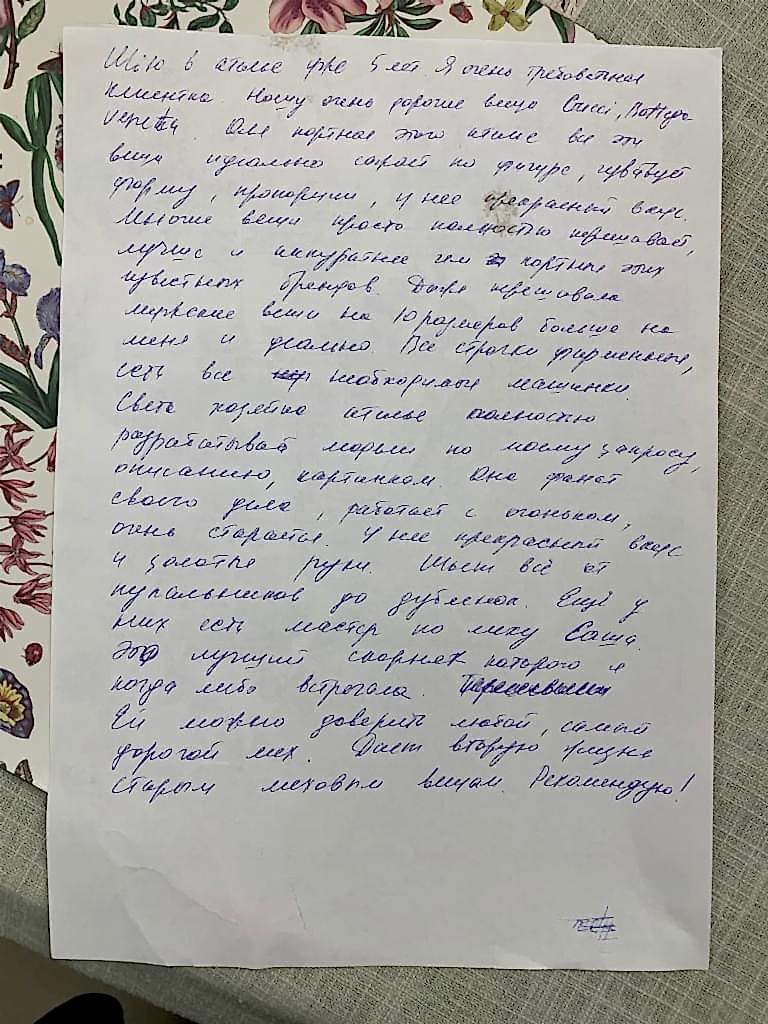 Шью в ателье уже 5 лет. Я очень требовательная
клиентка. Ношу очень дорогие вещи Gucci, Bottega
Veneta. Оля портная этого ателье все эти
вещи идеально сажает по фигуре, чувствует
форму, пропорции, у нее прекрасный вкус.
Многие вещи просто полностью перешивает,
лучше и аккуратнее чем портные этих
известных брендов. Даже перешивала
мужские вещи на 10 размеров больше на
меня идеально. Все строчки фирменные,
есть все необходимые машинки.
Света хозяйка ателье полностью
разрабатывает модели по моему запросу,
описанию, картинкам. Она фанат
своего дела, работает с огоньком,
очень старается. У нее прекрасный вкус
и золотые руки. Шьет всё от
купальников до дубленок. Ещё у
них есть мастер по меху Саша.
Это лучший скорняк которого я
когда либо встречала.
Ей можно доверить любой, самый
дорогой мех. Дает вторую жизнь
старым меховым вещам. Рекомендую!